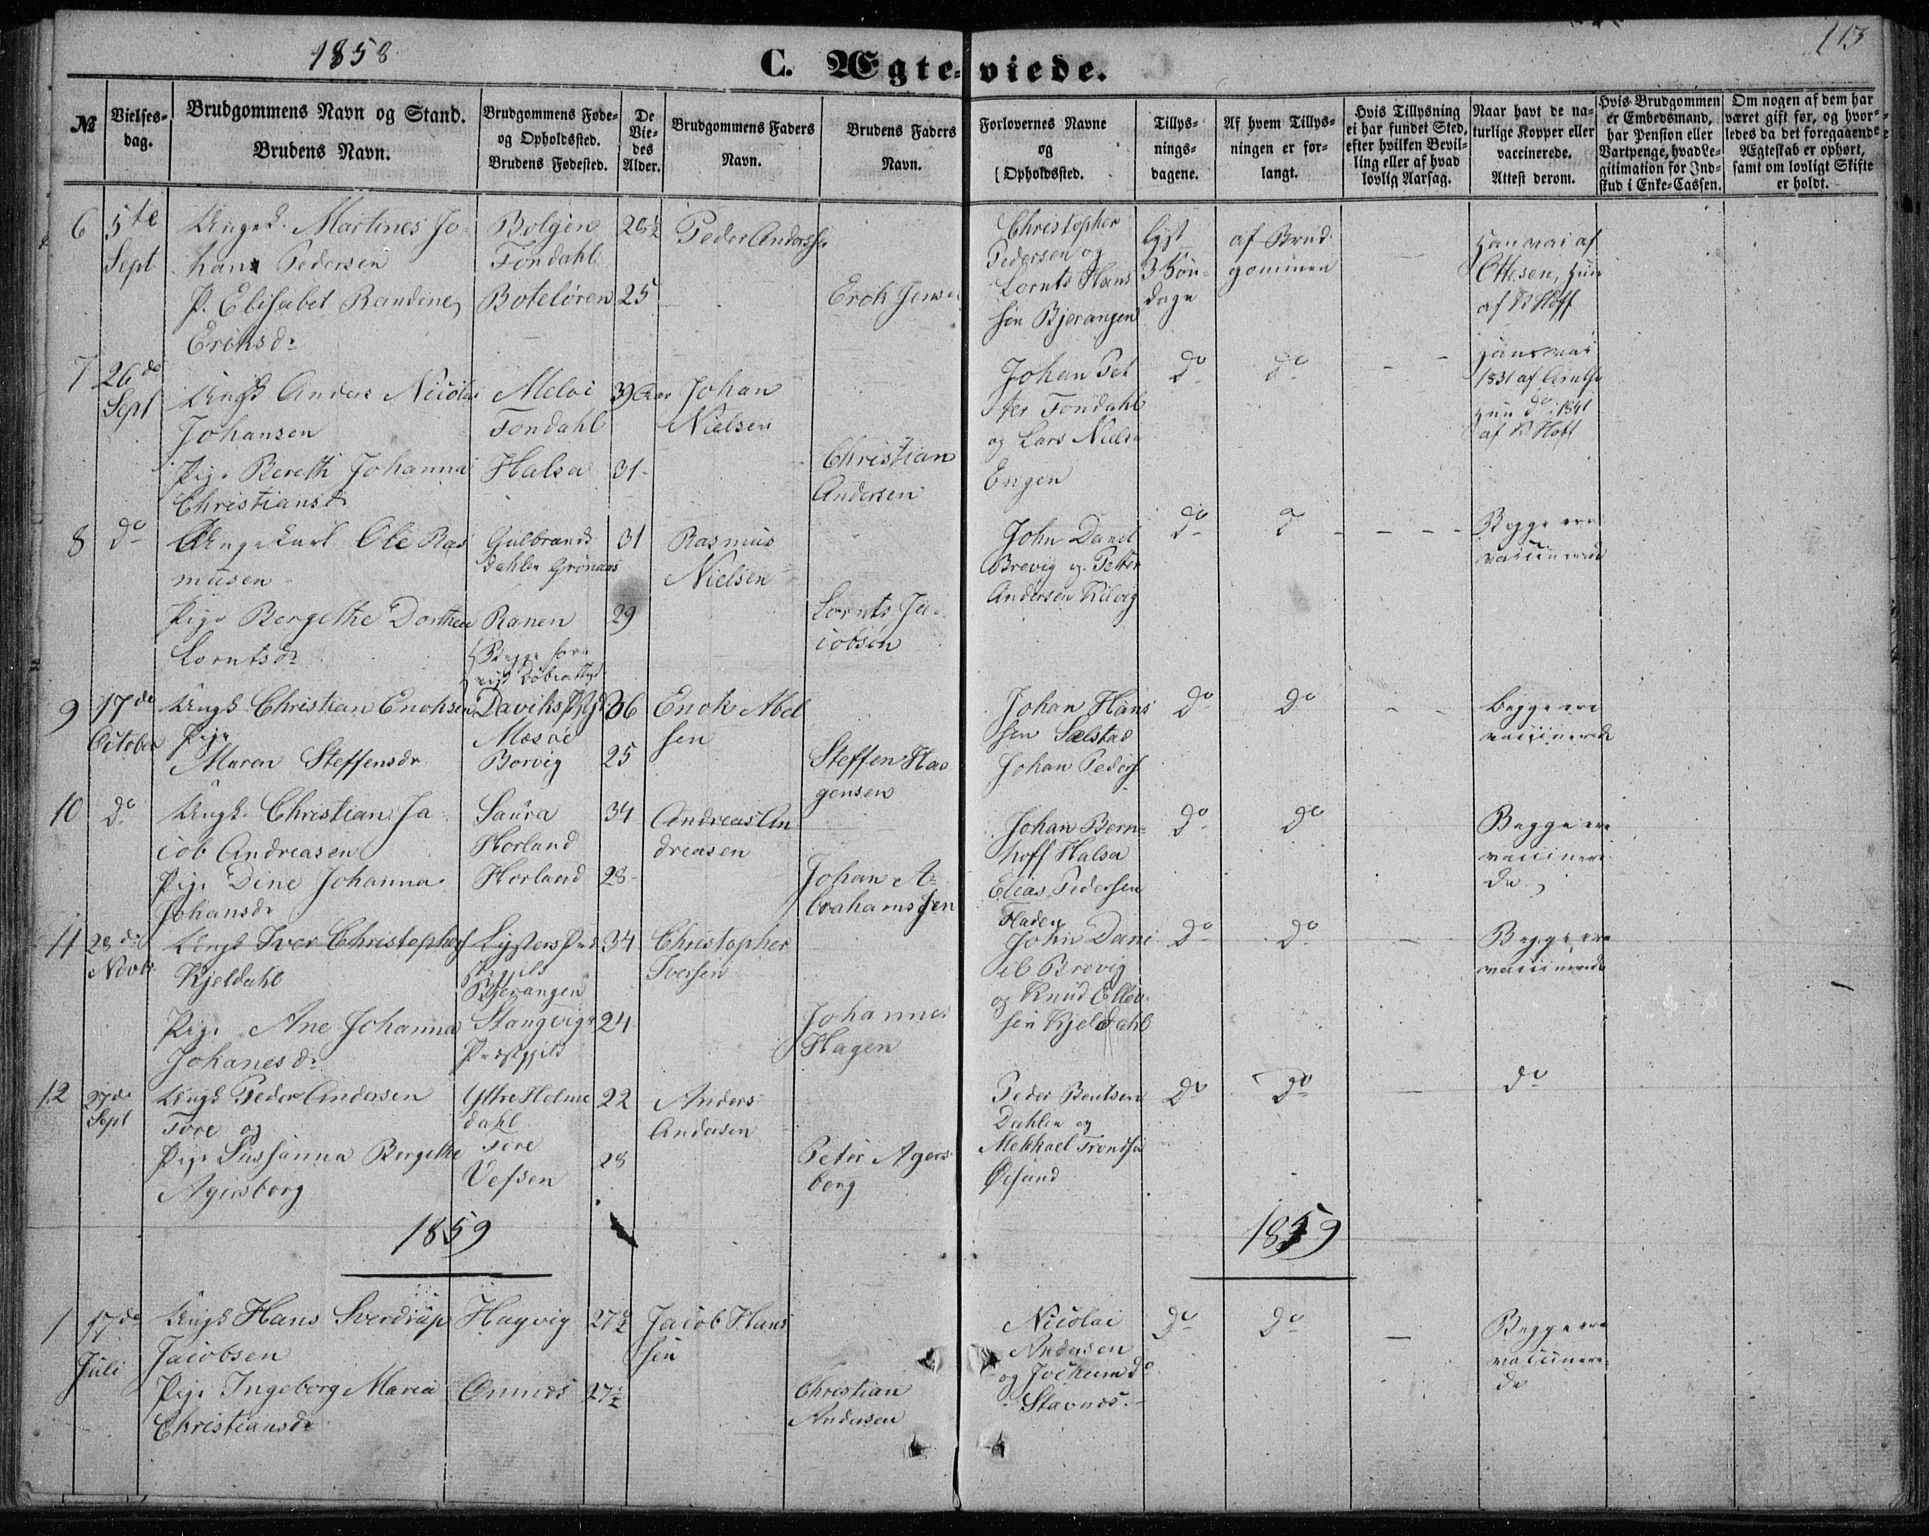 1858
C. Ægte-viede.
113
№
Vielses-
dag.
Brudgommens Navn og Stand.
Brudens Navn.
Brudgommens Føde-
og Opholdssted.
Brudens Fødested.
De
Vie-
des
Alder.
Brudgommens Faders
Navn.
Brudens Faders
Navn.
Forlovernes Navne
og
Opholdssted.
Tillys-
nings-
dagene.
Af hvem Tillys-
ningen er for-
langt.
Hvis Tillysning
ei har fundet Sted,
efter hvilken Bevil-
ling eller af hvad
lovlig Aarsag.
Naar havt de na-
turlige Kopper eller
vaccinerede.
Attest derom.
Hvis Brudgommen
er Embedsmand,
har Pension eller
Vartpenge, hvad Le-
gitimation for Ind-
skud i Enke-Cassen.
Om nogen af dem har
været gift før, og hvor-
ledes da det foregaaende
Ægteskab er ophørt,
samt om lovligt Skifte
er holdt.
6
5te
Sept
Ungk. Martines Jo-
han Pedersen
P. Elisabet Randine
Eriksdr
Bolgen
Fondahl
Boteløren
28½
25
Peder Anders
Erik Jens
Christopher
Pedersen og
Lornts Hans
sen Bjerangen
lyst
3 Søn-
dage
af Brud
gommen
Han vac af
Ottesen, hun
af P Hoff
7
26de
Sept
Ungk Anders Nicolai
Johansen
Pige Bereth Johanna
Christiansdr
Meløe
Fondahl
Halsa
39 Aar
31
Johan
Nielsen
Christian
Andersen
Johan Pet
ter Fondahl
og Lars Niels
Engen
do
do
Han vac
1831 af
Hun do 1841
af P Hoff
8
do
Ungekarl Ole Ras
musen
Pige Bergethe Dorthea
Lorntsdr
Gulbrands
dahlen Grønaas
Ranen
Begge
31
29
Rasmus
Nielsen
Lornts Ja-
cobsen
John Danil
Brevig og Petter
Andersen Kilvig
do
d
Begge ere
vaccinerede
9
17de
October
Ungk Christian Enoksen
Pige
Maren Steffensdr
Daviks Pgd
Mesøe
Borvig
36
25
Enok Abel
sen
Steffen Haa
gensen
Johan Hans
sen Selstad
Johan Peders
do
do
Begge ere
vaccinerede
10
do
Ungk. Christian Ja-
cob Andreasen
Pige Dine Johanna
Johansdr
Saura
Horland
Horland
34
28
Andreas An
dreasen
Johan A-
brahamsen
Johan Bern-
hoff Halsa
Elias Pedersen
Fladen
do
do
Begge ere
vaccinere
de
11
28de
Novbr
Ungk Iver Christophers
Kjeldahl
Pige Ane Johanna
Johanesdr
Lysters Præ
stgjeld
Bjerangen
Stangvigs
Præstgjeld
34
24
Christopher
Iversen
Johannes
Hagen
John Dani
el Brevig
og Knud Ellev-
sen Kjeldahl
do
do
Begge ere
vaccinerede
12
27de
Sept
Ungk Peder Andersen
Tore og
Pige Sussanna Bergethe
Agersborg
Ytre Holme
dahl
Tore
Vefsen
22
28
Anders
Andersen
Peter Agers
borg
Peder Bentsen
Dahlen og
Mekkael Trondsen
Øesund
do
do
do
1859
1859
1
17de
Juli
Ungk Hans Sverdrup
Jacobsen
Pige Ingeborg Maria
Christiansdr
Hagvig
Ornnes
27½
27½
Jacob Hans
sen
Christian
Andersen
Nicolai
Andersen
og Jochum do
Stavnæs
do
do
Begge ere
vaccinere-
de